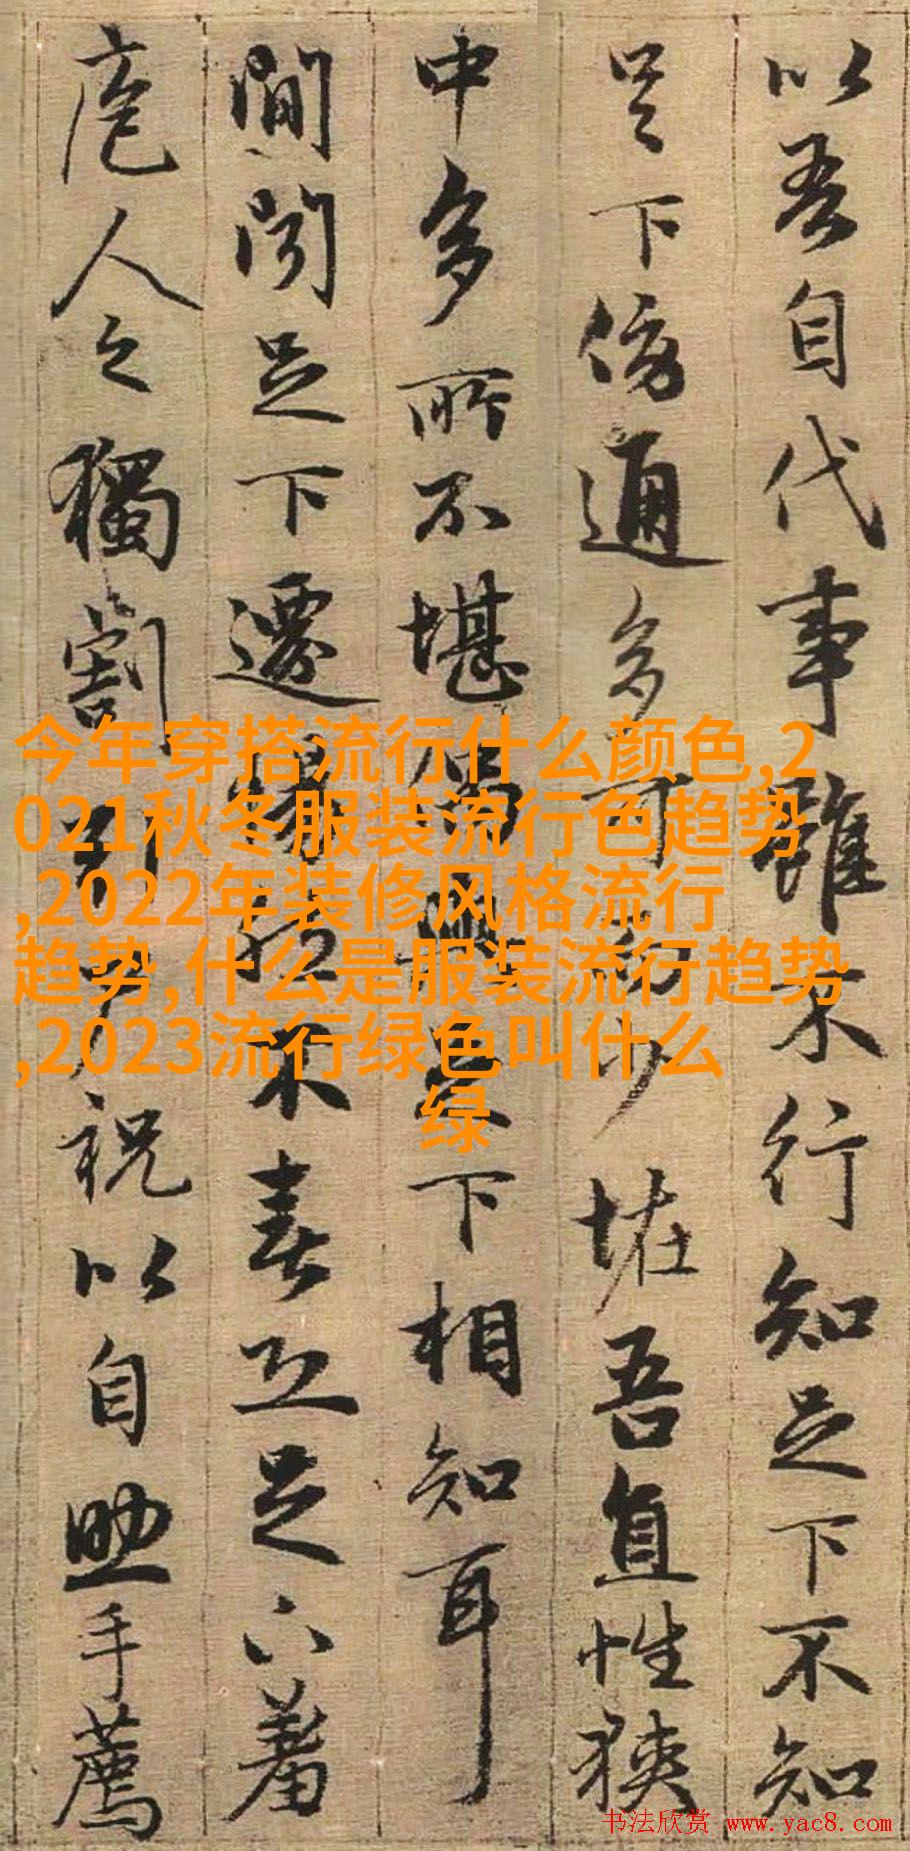 以吾自代事雖不行知足下不知
足下傍通多可而少恠吾直性狹
中多所不堪偶與足下相知耳
間聞足下遷惕然不喜恐足下羞
庖人之獨割引尸祝以自助手薦
今年穿搭流行什么颜色,2
021秋冬服装流行色趋势
,2022年装修风格流行
趋势,什么是服装流行趋势
,2023流行绿色叫什么
绿
书法欣赏 www.yac8.com